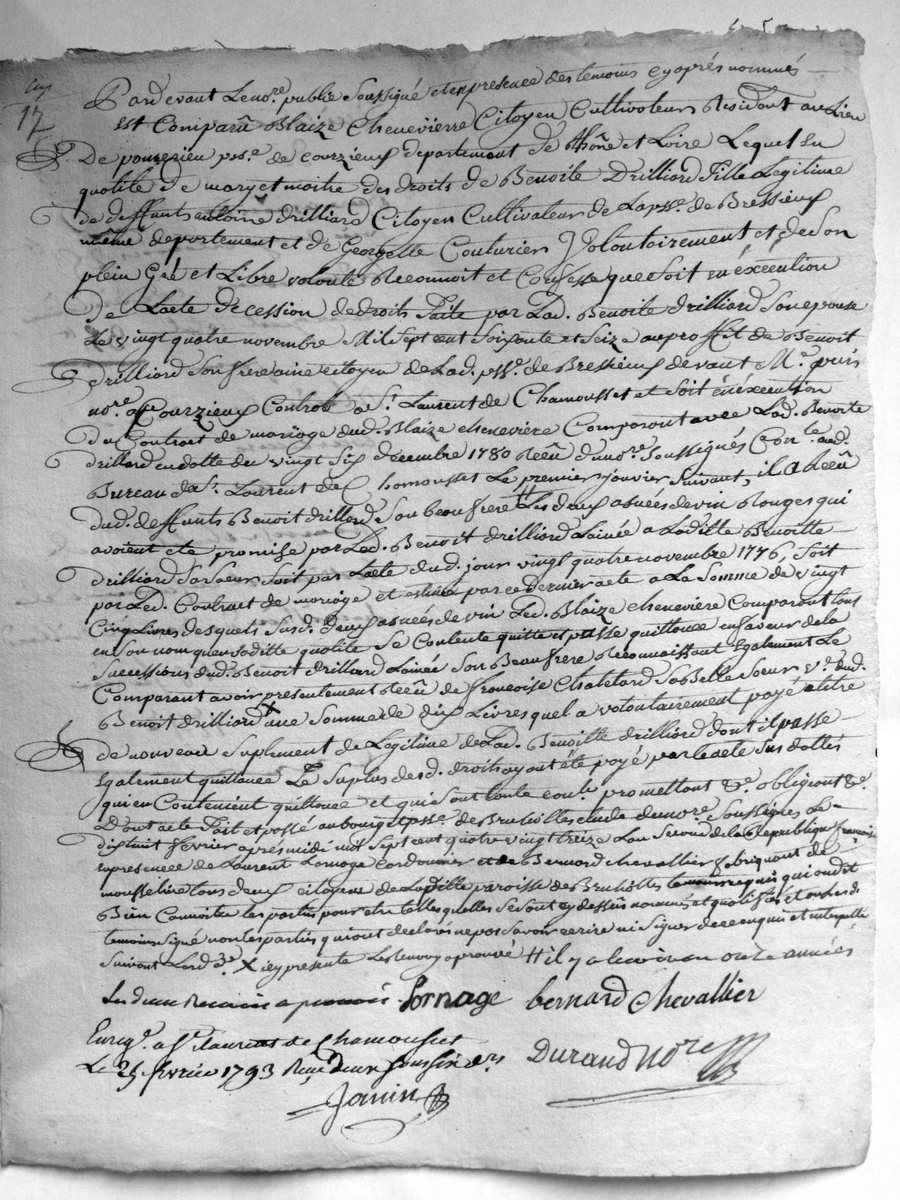 Pardevant Le no.re public soussigné et en presence des temoins cy après nommés
Est Comparû Blaize Chenevierre Citoyen Cultivateur Résidant au Lieu
17
De poncerieu p.sse de courzieux departement de Rhône et Loire Lequel en
qualité De mary et maitre des droits de Benoite Drilliard fille Legitime
de deffunts antoine drilliard Citoyen Cultivateur de La p.sse de Bressieux
même departement et de Couturier Volontairement et de son
plein Gré et Libre volonté Reconnoit et Confesse que soit en éxécution
De L'acte de cession de droits faite par Lad. Benoite drilliard son epouse
Le vingt quatre novembre Mil Sept cent Soixante et Seize au proffit de Benoit
drilliard son frere ainé citoyen de Lad. p.sse de Bressieux devant M.e
no.re a Courzieux Controlé a S.t Laurent de Chamousset et soit en éxécution
du Contract de mariage dud. Blaize cheneviere Comparant avec Lad. Benoite
drillard en datte du vingt six decembre 1780 Reçû du no.re Soussignés Con.lé aud.
Bureau de S.t Laurent de Chamousset Le premier janvier Suivant, il a Reçû
dud. deffunts Benoit drillard Son beau frere # Les deux asnées de vin Rouges qui
avoient eté promise par Led. Benoit drilliard L'ainée a Laditte Benoitte
drilliard Sa Soeur Soit par L'acte dud. jour vingt quatre novembre 1776, Soit
par Led. Contract de mariage et estimé par ce dernier acte a La Somme de vingt
Cinq Livres desquels susd. deux asnées de vin Led. Blaize cheneviere Comparant tant
en son nom qu'en saditte qualité Se Contente quitte et passe quittance en faveur de la
Succession dud. Benoit drillard L'ainée Son Beau frere Reconnaissant egalement Le
Comparant avoir presentement Reçû de françoise Chatelard Sa Belle Soeur V.e dud.
Benoit drilliard X une Somme de dix Livres quel a volontairement payé a titre
de nouveau Suplement de Legitime de Lad. Benoitte drilliard dont il passe
Egalement quittance Le Surplus desd. droits ayant eté payé par L'acte Sus dattés
qui en Contienient quittance et qui sont toute promettant &.e obligeant &.e
Dont acte fait et passé au bourg et p.sse de Brullioles etude du no.re Soussignes Le
dix huit fevrier après midi mil Sept cent quatre vingt treize L'an Second de la République française
en presence de Laurent Lornage Cordonnier et de Bernard chevallier fabriquant de
mousseline tous deux citoyens de Laditte paroisse de Brullioles temoins requis qui ont dit
Bien Connoitre Les parties pour etre telles quelles Se Sont cy dessus nommés et qualifiés et ont Les d.
temoins Signé non les parties qui ont declarés ne pas Savoir ecrire ni Signer de ce enquis et interpellé
Suivant L'ord.ce X icy presente Le Renvoy aprouvé # il y a environ onze années
Les deux Renvois aprouvés Lornage bernard Chevallier
Enreg.é a S.t Laurent de Chamousset
Le 25 fevrier 1793 Reçu Durand No.re
Janin